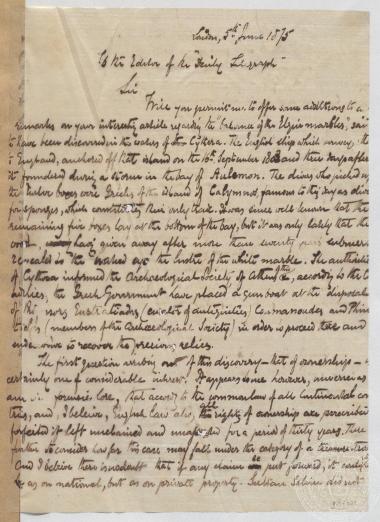 London, 5th June 1875
To the Editor of the "Daily Telegraph"
Sir
Will you permit me to offer some additions to a
remarks on your interesting article regarding the "balance of the Elgin marbles", said
to have been discovered in the waters of Cythera. The English ship which convey the
to England, anchored off that island on the 16th September 1802 and three days after
it foundered during a storm in the bay of Avlemon. The divers who picked up
the twelve boxes were Greeks of the island of Calymnos, famous to this day as diver
for sponges, which constitutes their only trade. It was since well known that the
remaining five boxes lay at the bottom of the bay, but it was only lately that the
wood having given away after more than twenty years submer
revealed to the naked eye the lustre of the white marble. The authorities
of Cythera informed the Archaeological Society of Athens, according to the
the Greek Government have placed a gunboat at the disposal
of Eustratiades (curator of antiquities) Cosmanoudes and
(members of the Archaeological Society) in order to proceed there and
endeavour to recover the precious relics.
The first question arising out of this discovery - that of ownership -
certainly one of considerable interest. It appears to me however,
am in forensic lore, that according to the common law of all Continental coun
tries, and, I believe, English Law also, the rights of ownership are
forfeited if left unclaimed and for a period of thirty years, there
further to consider how far this case may fall under the category of a treasure-trove
And I believe there is no doubt that if any claim be put forward, it
as on national, but as on private property. Sultan Selim did not